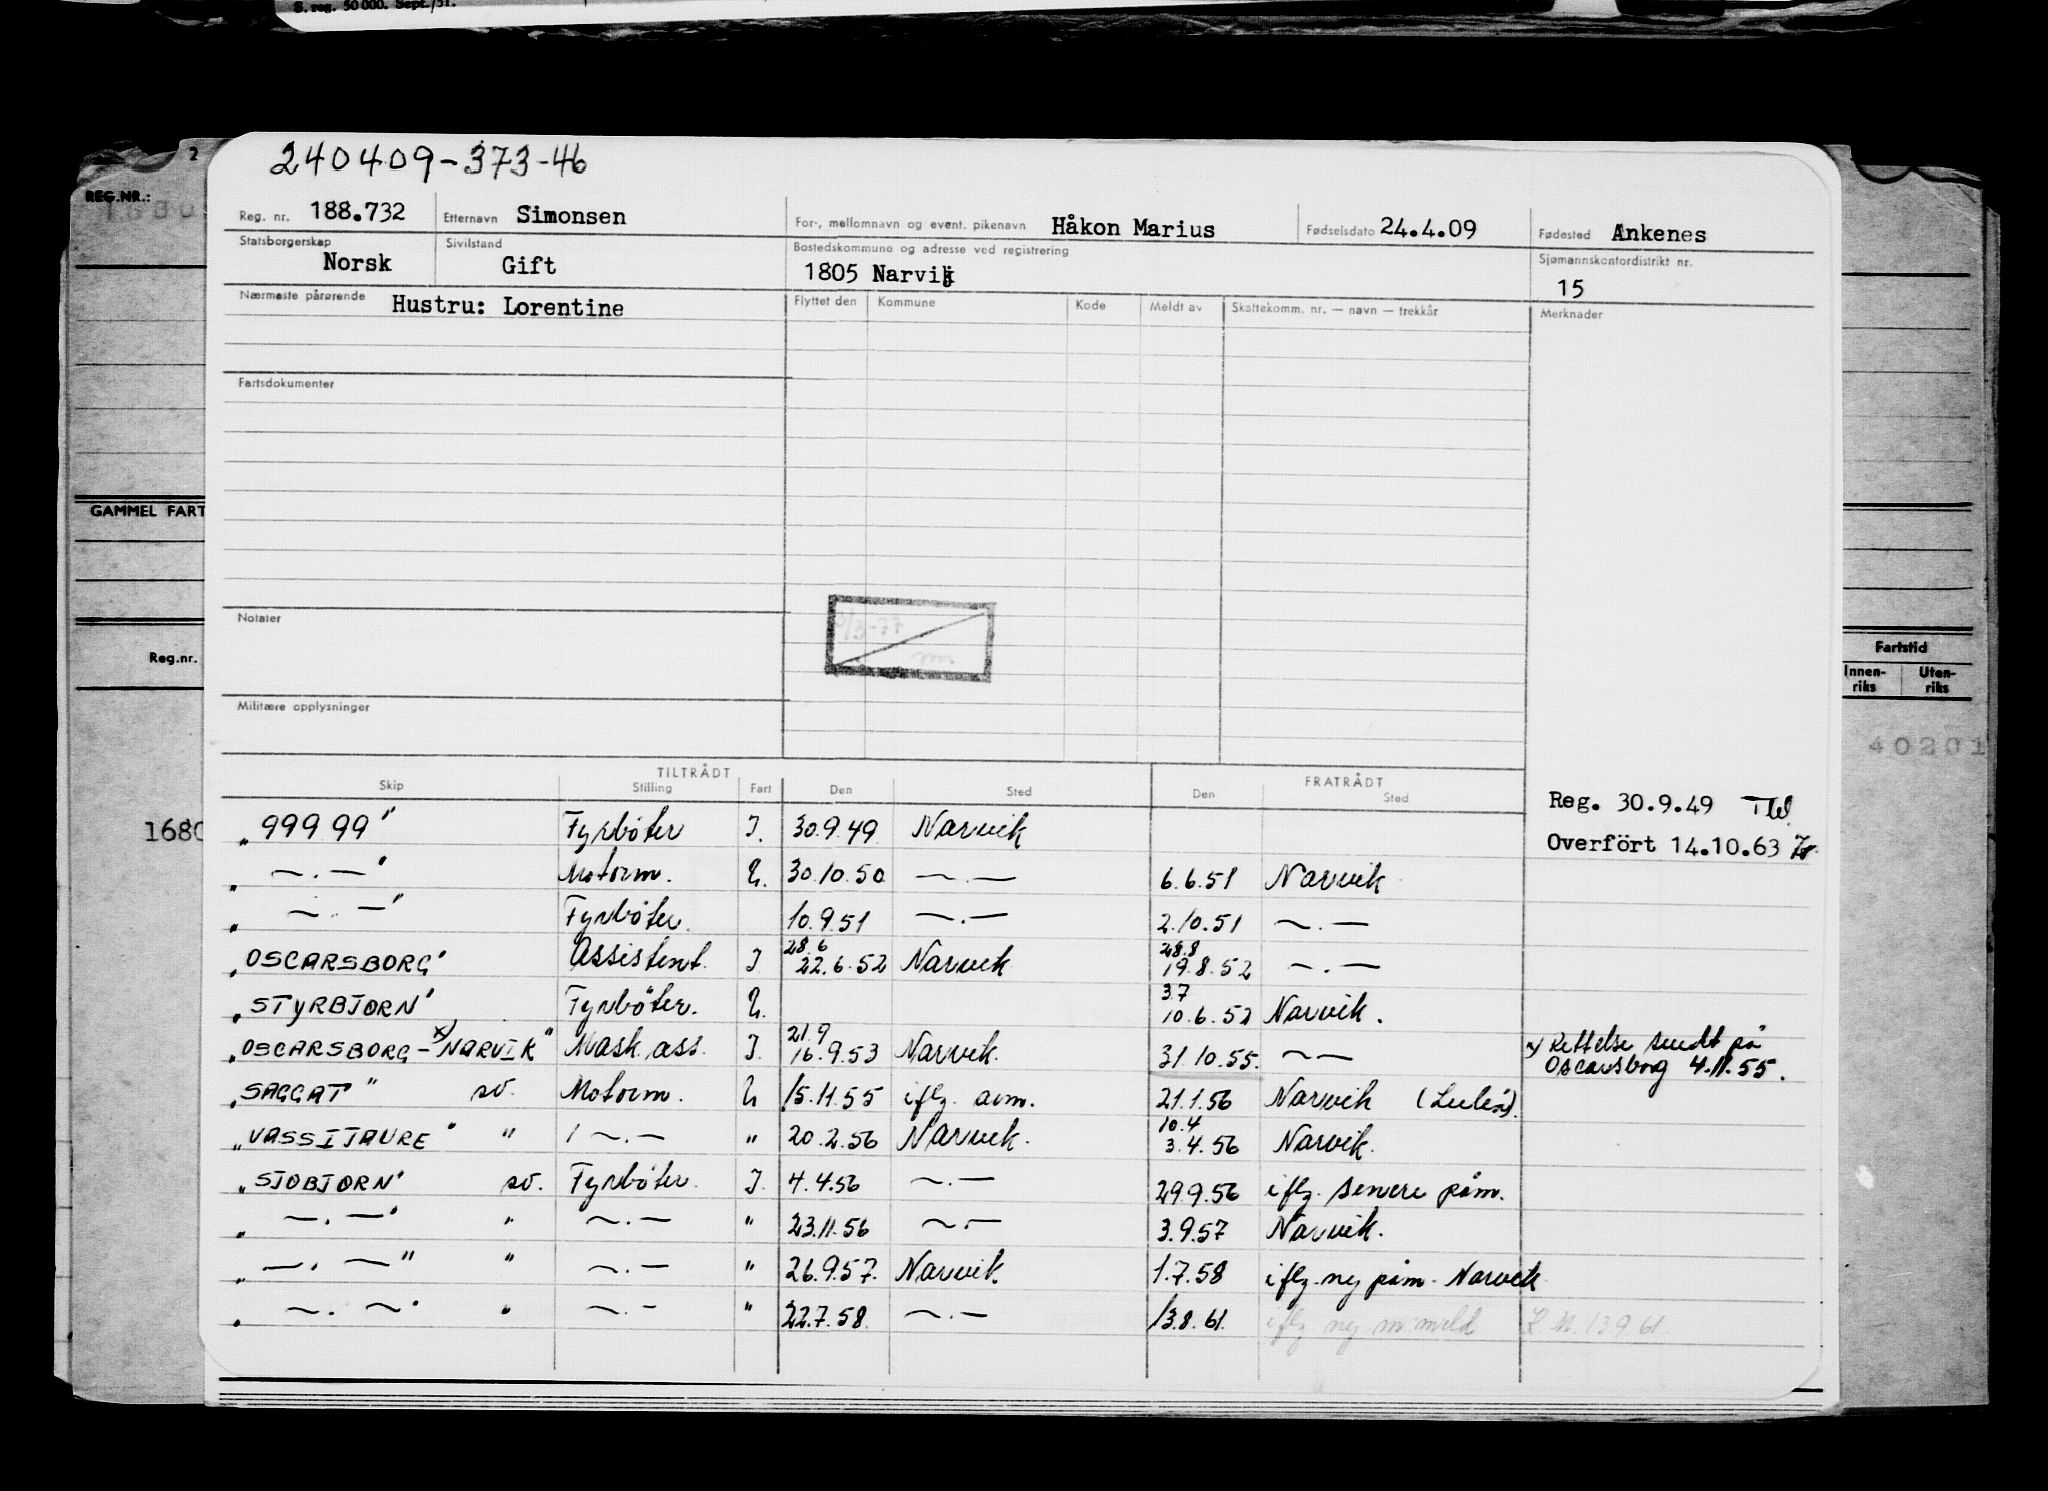 S. reg. 50 000. Sept./51.
2
240409-373-46
REG.NR.:
Reg. nr. 188.732 Etternavn Simonsen For-, mellomnavn og event. pikenavn Håkon Marius Fødselsdato 24.4.09 Fødested Ankenes
Statsborgerskap Norsk Sivilstand Gift Bostedskommune og adresse ved registrering 1805 Narvik Sjømannskontordistrikt nr. 15
Nærmeste pårørende Hustru: Lorentine Flyttet den Kommune Kode Meldt av Skattekomm. nr. — navn — trekkår Merknader
Fartsdokumenter
GAMMEL FART
Notater
Reg.nr.
Fartstid
Innen-riks Uten-riks
Militære opplysninger
40201
TILTRÅDT FRATRÅDT
Skip Stilling Fart Den Sted Den Sted
Reg. 30.9.49
1680
„99999" Fyrböter J. 30.9.49 Narvik
Overfört 14.10.63
„—.—" Motorm. U. 30.10.50 —.— 6.6.51 Narvik
„—.—" Fyrböter. 10.9.51 —.— 2.10.51 —.—
28.6 28.8
„OSCARSBORG" Assistent. J 22.6.52 Narvik 19.8.52 —.—
3.7
„STYRBJORN" Fyrböter. U. 10.6.52 Narvik.
21.9
„OSCARSBORG-x) NARVIK" Mask.ass. J. 16.9.53 Narvik. 31.10.55. —— x) Rettelse sendt på
Oscarsborg 4.11.55.
„SAGGAT" sv. Motorm. U 15.11.55 iflg. avm. 21.1.56 Narvik (Luleå).
10.4
„VASSIJAURE" " —.— " 20.2.56 Narvik. 3.4.56 Narvik.
„SJOBJORN" sv. Fyrböter. J. 4.4.56 —.— 29.9.56 iflg. senere påm.
„—.—" " —.— " 23.11.56 —.— 3.9.57 Narvik.
„—.—" " —.— " 26.9.57. Narvik. 1.7.58 iflg. ny påm. Narvik
„—.—" " —.— " 22.7.58 —.— 13.8.61. iflg ny m.meld 13.9.61